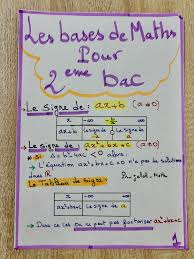 Les bases de Maths
Pour
2 eme bac
Le signe de : ax+b (a≠0)
x -∞ -b/a +∞
ax+b Le signe de -a Le signe de a
Le signe de : ax²+bx+c (a≠0)
Si Δ=b²-4ac < 0 alors :
L'équation ax²+bx+c=0 n'a pas de solution
dans ℝ
Le Tableau de signe
x -∞ +∞
ax²+bx+c Le signe de a
Dans ce cas on ne peut pas factoriser ax²+bx+c
1